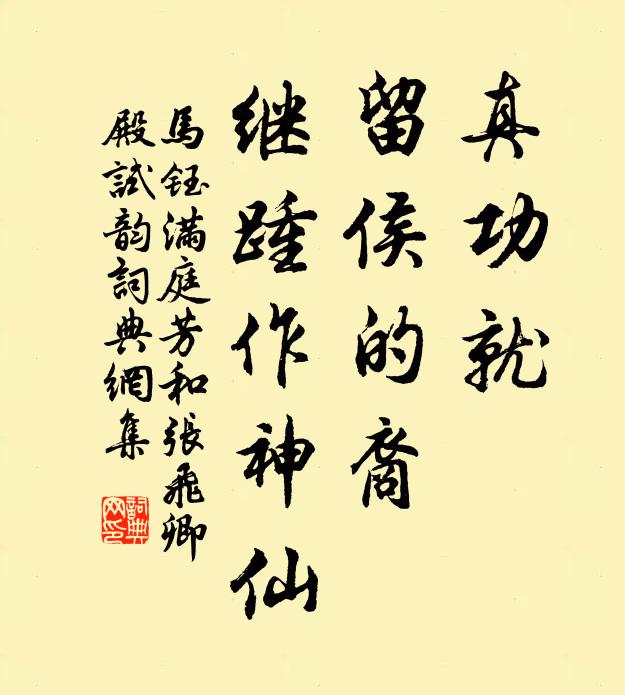 真功就
留侯的裔
继踵作神仙
馬鈺满庭芳和張飛卿
殿試韵詞典網集
詞典